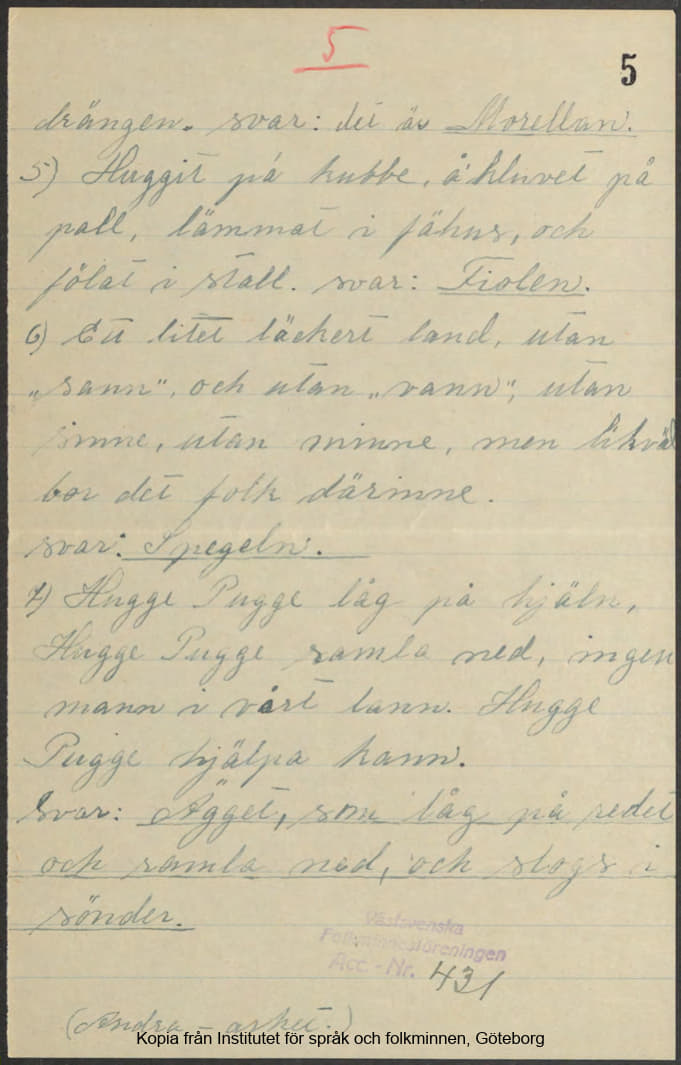 5
5
drängen. svar: det är Morellan.
5) Huggit på kubbe, å kluvet på
pall, lämmat i fähus, och
fölat i stall. svar: Fiolen.
6) Ett litet läckert land, utan
„sann", och utan „vann", utan
sinne, utan minne, men likväl
bor det folk därinne.
svar: Spegeln.
7) Hugge Pugge låg på hjäln,
Hugge Pugge ramla ned, ingen
mann i vårt lann. Hugge
Pugge hjälpa kann.
Svar: Ägget, som låg på redet
och ramla ned, och slogs i
sönder.
Västsvenska
Folkminnesföreningen
Acc. - Nr. 431
(Andra - arket.)
Kopia från Institutet för språk och folkminnen, Göteborg